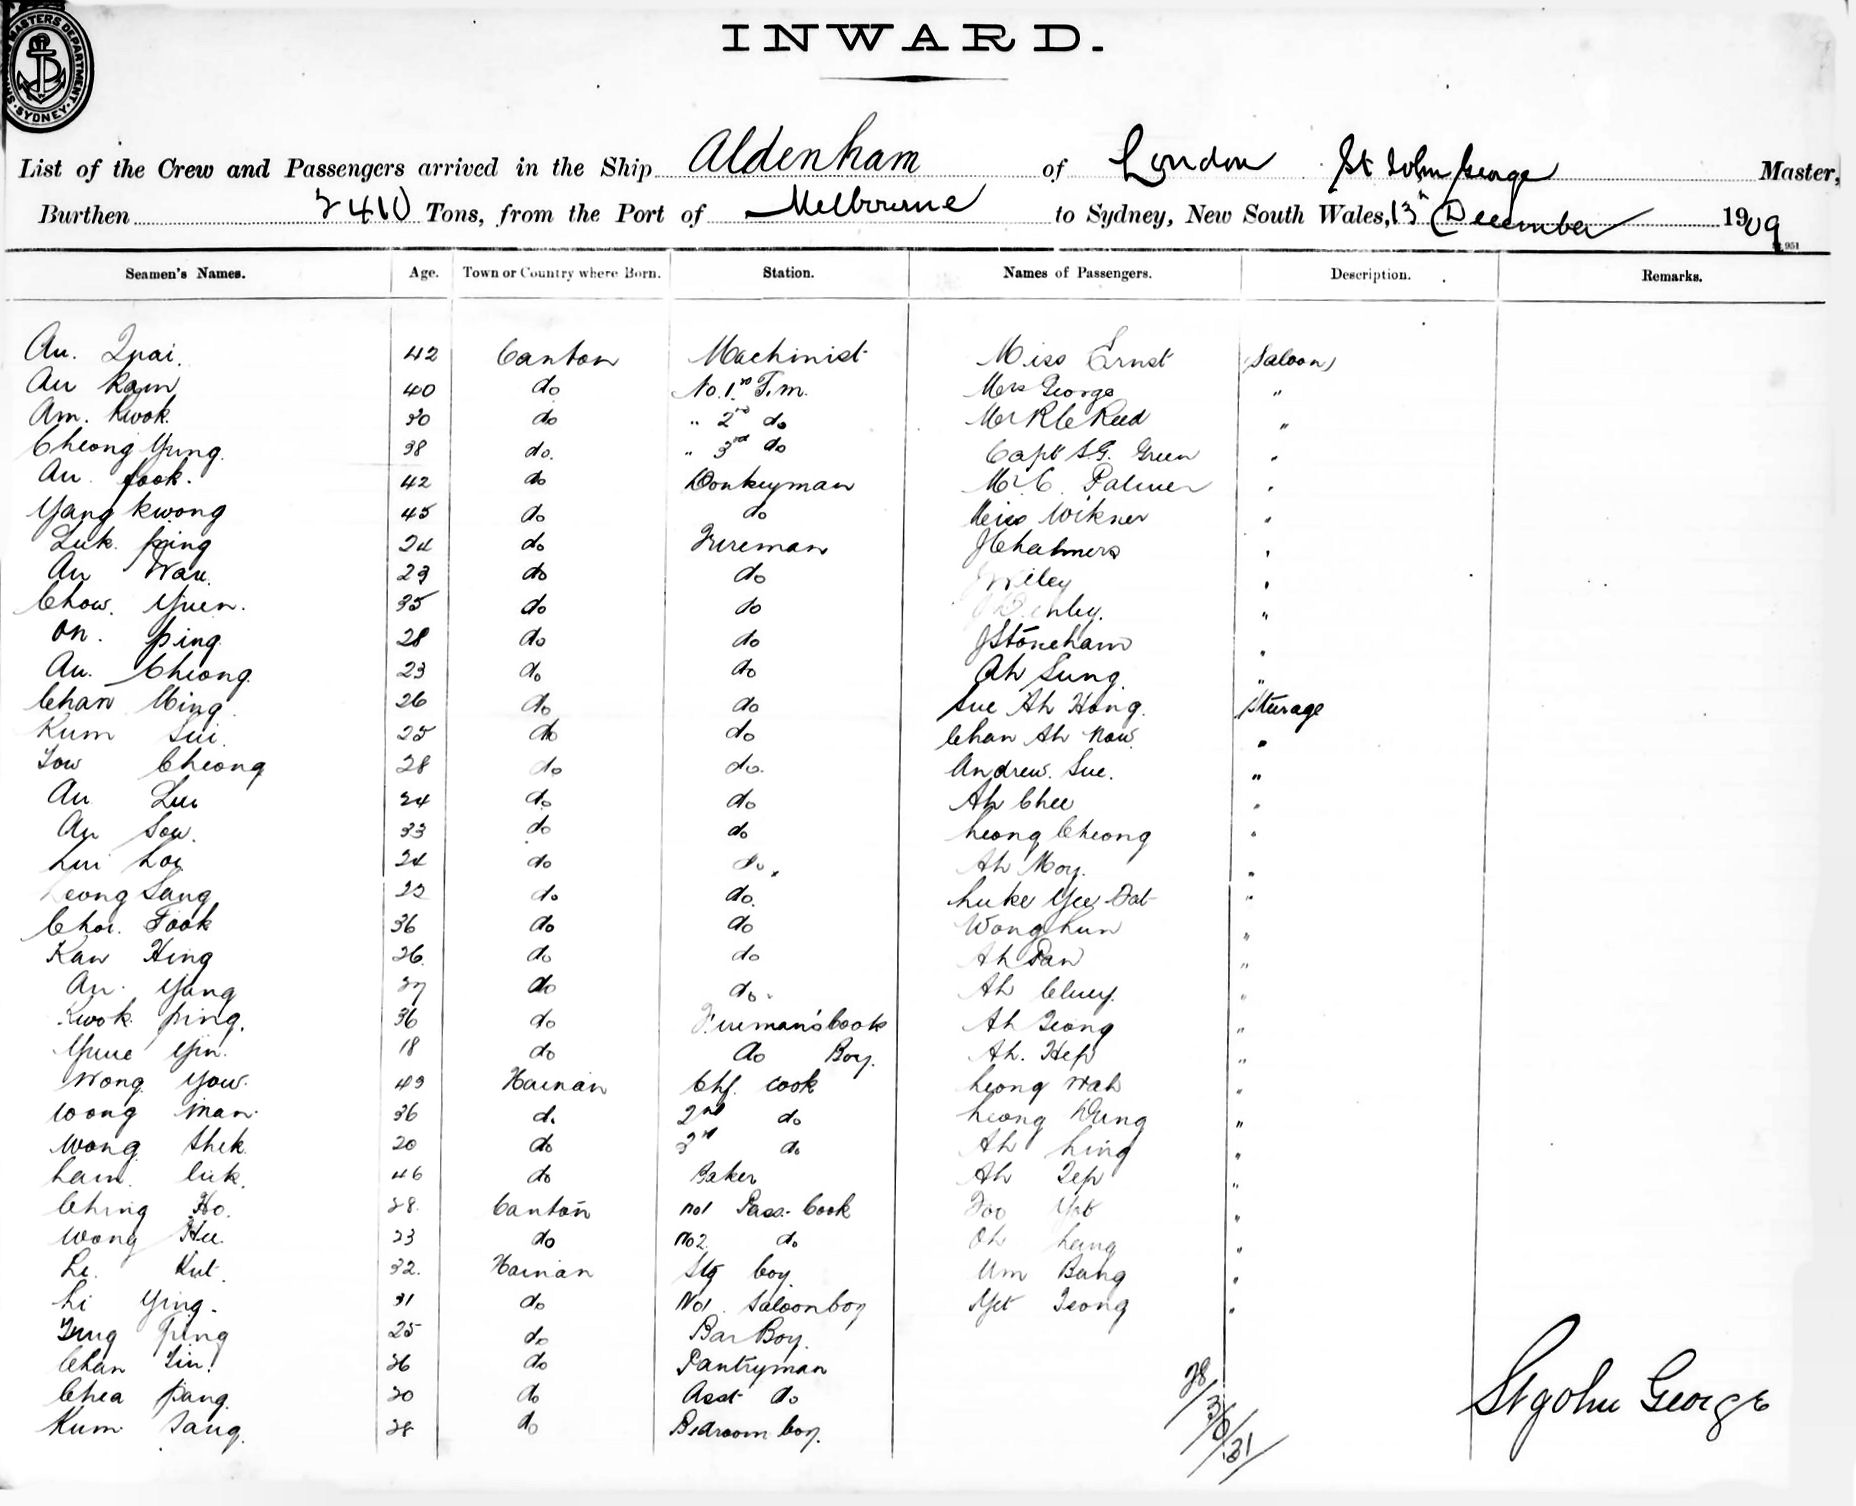 INWARD.
SYDNEY
List of the Crew and Passengers arrived in the Ship Aldenham of London St John George Master,
Burthen 2410 Tons, from the Port of Melbourne to Sydney, New South Wales, 13th December 1909
Seamen's Names. Age. Town or Country where Born. Station. Names of Passengers. Description. Remarks.
Au. Quai. 42 Canton Machinist Miss Ernst Saloon
Au Kam 40 do No. 1st F.m. Mrs George "
Am. Kwok 30 do " 2nd do Mr R C Reed "
Cheong Yung. 38 do. " 3rd do Capt S.G. Green "
Au fook. 42 do Donkeyman Mr C. Palmer "
Yang Kwong 45 do do Miss Wikner "
Luk. ping 24 do Fireman J Chalmers "
Au Wau. 29 do do J Wiley "
Chow. Yuen. 35 do do "
On. ping. 28 do do J Stoneham "
Au. Cheong. 23 do do Ah Sung. "
Chan Ming. 26 do do Sue Ah Hong. Sturage
Kum Sui. 25 do do Chan Ah Now. "
Tow Cheong 28 do do. Andrew. Sue. "
Au Lui 24 do do Ah Chee "
Au Sow. 33 do do Leong Cheong "
Lui Loy 24 do do. Ah Moy. "
Leong Sang 22 do do. Luke Yee Dat "
Choi. Fook 36 do do Wong Lun "
Kaw Hing 26. do do Ah Pan "
Au. Yang 37 do do. Ah Cluey. "
Kwok ping. 36 do Fireman's Cook Ah Geong "
Yuue Yin. 18 do do Boy. Ah. Hep "
Wong Yow. 49 Hainan Chf. Cook Leong Wah "
Wong Man. 36 do 2nd do Leong Kung "
Wong Shek. 20 do 3rd do Ah Ling "
Lam. Luk. 46 do Baker Ah Yep "
Ching Ho. 28. Canton No1 Pass. Cook Foo Yot "
Wong Hu. 23 do No2 do Oh Leung "
Li. Kut. 32. Hainan Stg boy Um Bang "
Li Ying. 31 do No1. Saloonboy Yet Geong "
Tung Ping 25 do Bar Boy.
Chan Yin. 26 do Pantryman
Chea pang. 20 do Asst do
Kum Sang. 28 do Bedroom boy.
St John George